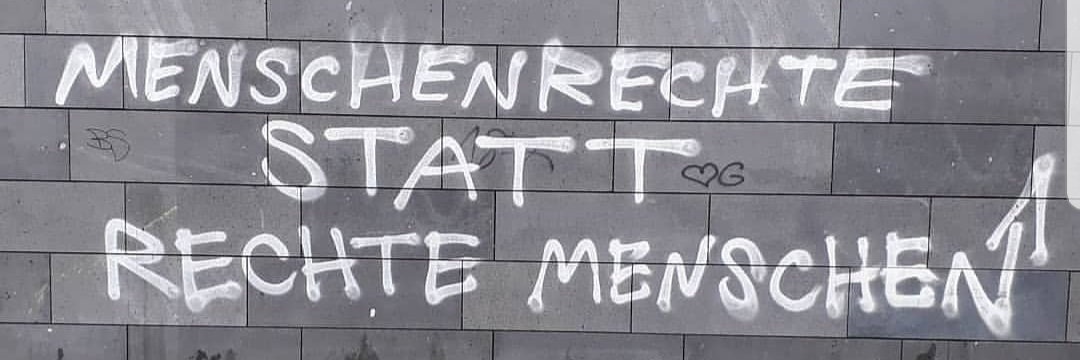 MENSCHENRECHTE
BS
STATT
♡G
RECHTE MENSCHEN